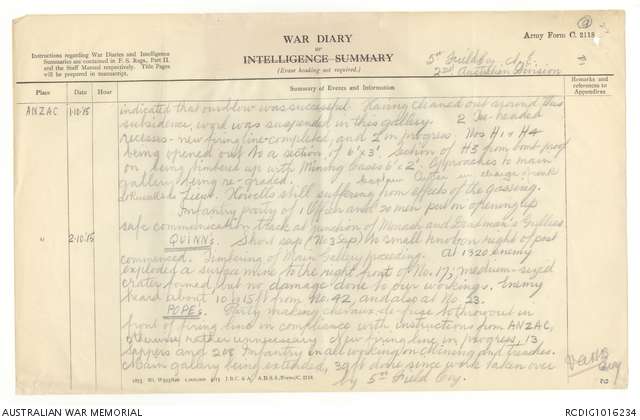 WAR DIARY
or
INTELLIGENCE SUMMARY
(Erase heading not required.)
Army Form C. 2118
Instructions regarding War Diaries and Intelligence
Summaries are contained in F. S. Regs., Part II.
and the Staff Manual respectively. Title Pages
will be prepared in manuscript.
5th Field Coy A.E.
2nd Australian Division
Place Date Hour Summary of Events and Information Remarks and references to Appendices
ANZAC 1.10.15 indicated that our blow was successful. Having cleaned out around this
subsidence, word was suspended in this gallery. 2 Tee-headed
recesses - new firing line - complete, and 2 in progress. Nos H1 & H4
being opened out to a section of 6'x3'. Section of H3 from bomb-proof
on, being timbered up with Mining Cases 6' x 2'. Approaches to main
gallery being re-graded.
Lieut. Howells still suffering from effects of the gassing.
Infantry party of 1 Officer and 20 men put on opening up
safe communication track at junction of Monash and Deadman's Gullies
" 2.10.15 QUINNS. Short sap (No 3 Sap) to small knob on right of post
commenced. Timbering of Main Gallery proceeding. At 1320 enemy
exploded a surface mine to the right front of No. 17; medium-sized
crater formed but no damage done to our workings. Enemy
heard about 10 to 15 ft from No. 42, and also at No. 23.
POPES. Party making chevaux de frise to throw out in
front of firing line in compliance with instructions from ANZAC,
otherwise rather unnecessary. New firing line in progress, 13
sappers and 208 Infantry in all working on mining and trenches.
Main gallery being extended, 39 ft done since work taken over
by 5th Field Coy.